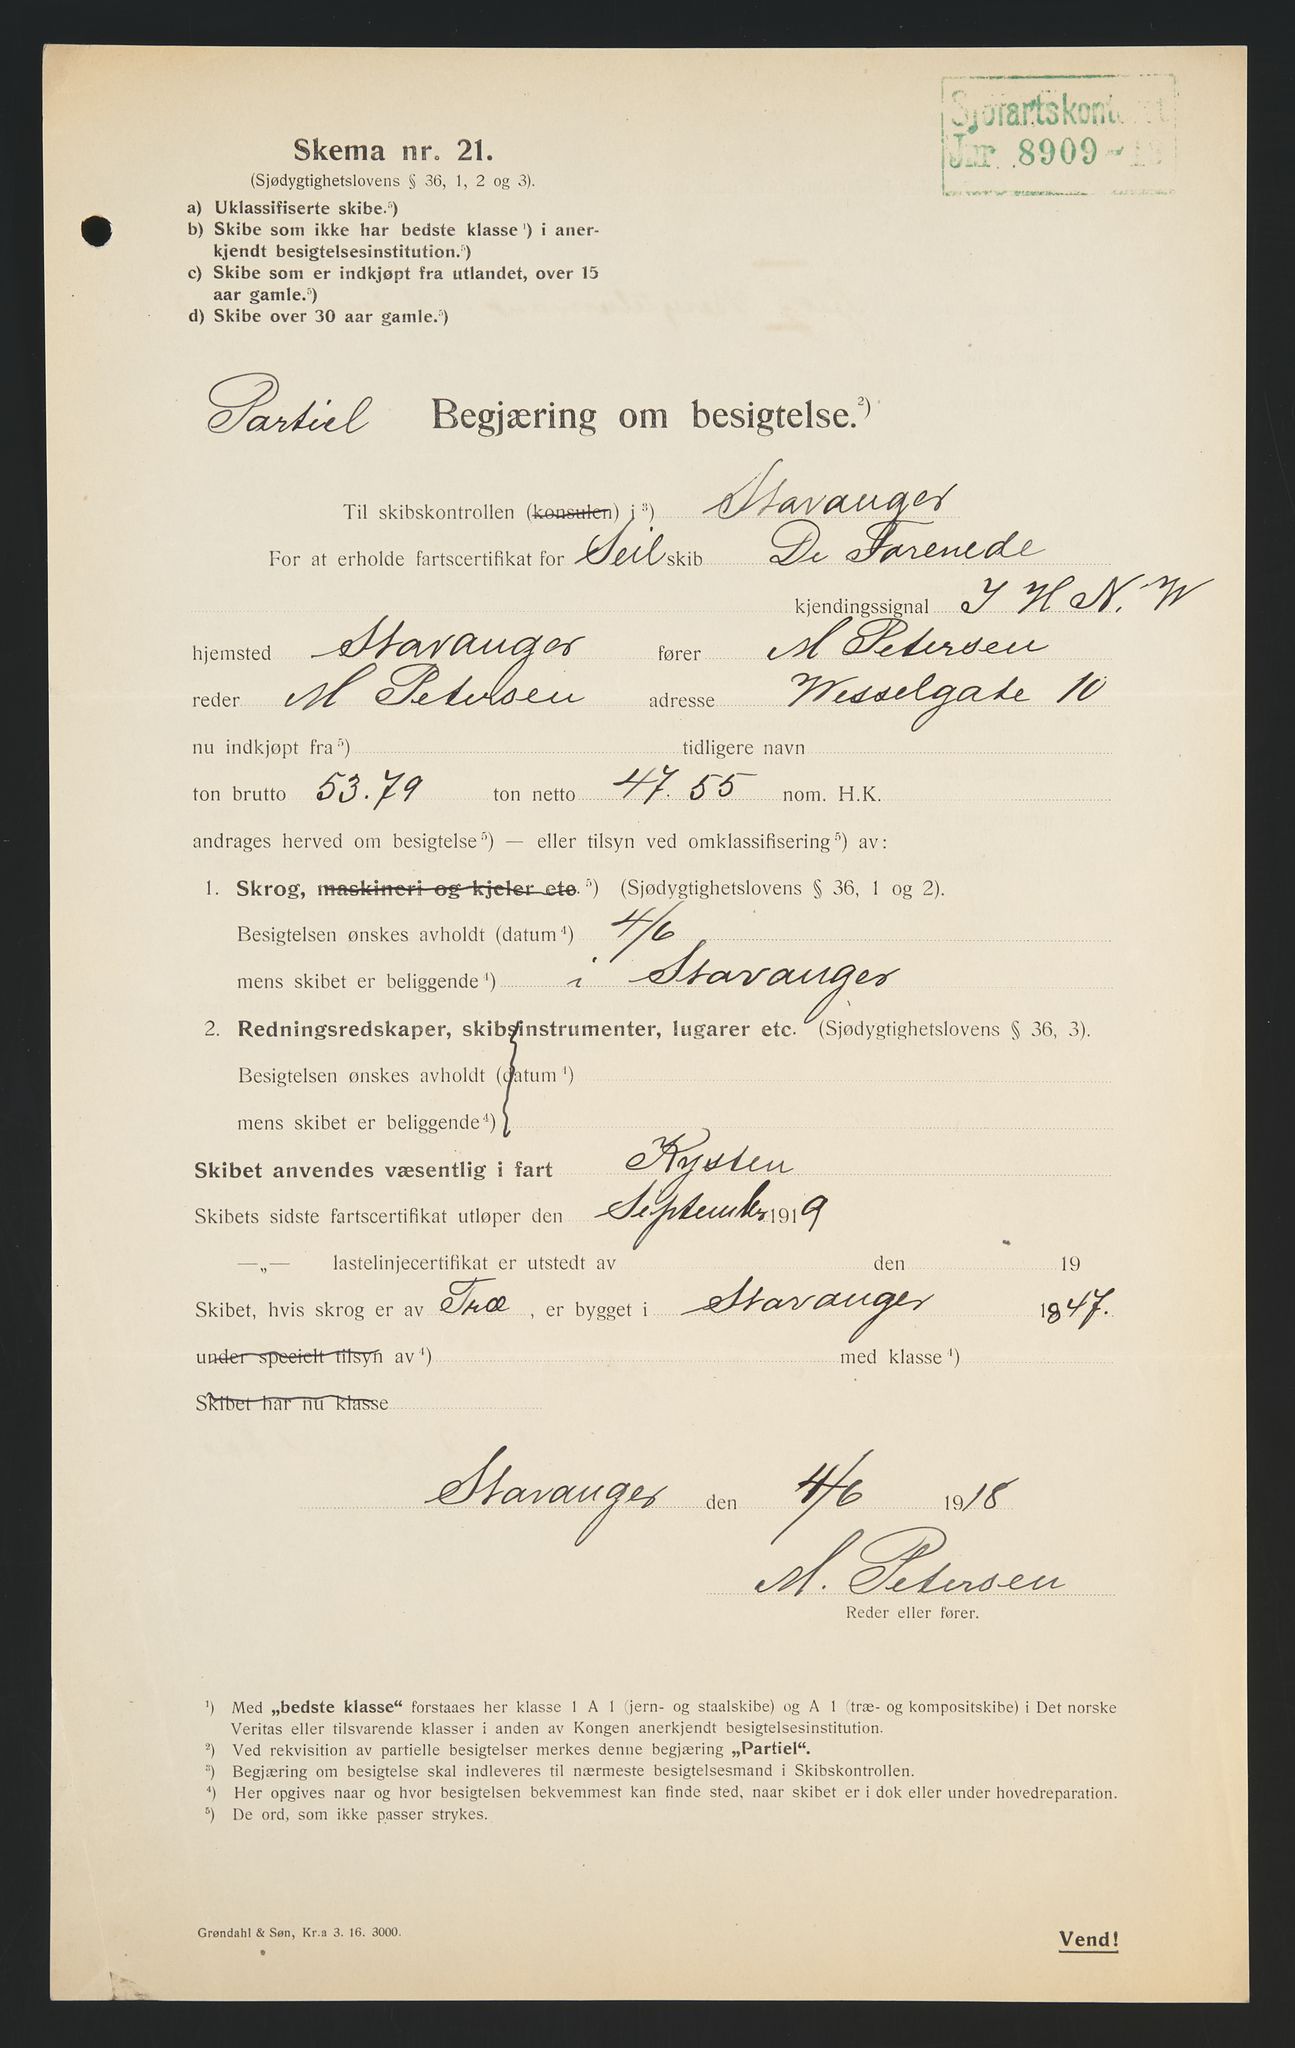 Sjøfartskontoret
Jnr. 8909 - 18
Skema nr. 21.
(Sjødygtighetslovens § 36, 1, 2 og 3).
a) Uklassifiserte skibe.⁵)
b) Skibe som ikke har bedste klasse¹) i aner-
kjendt besigtelsesinstitution.⁵)
c) Skibe som er indkjøpt fra utlandet, over 15
aar gamle.⁵)
d) Skibe over 30 aar gamle.⁵)
Partiel Begjæring om besigtelse.²)
Til skibskontrollen (konsulen) i³) Stavanger
For at erholde fartscertifikat for Seil skib De Forenede
kjendingssignal J H N. W
hjemsted Stavanger fører M Petersen
reder M Petersen adresse Wesselgate 10
nu indkjøpt fra⁵) tidligere navn
ton brutto 53.79 ton netto 47.55 nom. H.K.
andrages herved om besigtelse⁵) — eller tilsyn ved omklassifisering⁵) av:
1. Skrog, maskineri og kjeler etc.⁵) (Sjødygtighetslovens § 36, 1 og 2).
Besigtelsen ønskes avholdt (datum⁴) 4/6
mens skibet er beliggende⁴) i Stavanger
2. Redningsredskaper, skibsinstrumenter, lugarer etc. (Sjødygtighetslovens § 36, 3).
Besigtelsen ønskes avholdt (datum⁴)
mens skibet er beliggende⁴)
Skibet anvendes væsentlig i fart Kysten
Skibets sidste fartscertifikat utløper den September 1919
—„— lastelinjecertifikat er utstedt av den 19
Skibet, hvis skrog er av Træ, er bygget i Stavanger 1847.
under specielt tilsyn av⁴) med klasse⁴)
Skibet har nu klasse
Stavanger den 4/6 1918
M. Petersen
Reder eller fører.
¹) Med „bedste klasse“ forstaaes her klasse 1 A 1 (jern- og staalskibe) og A 1 (træ- og kompositskibe) i Det norske
Veritas eller tilsvarende klasser i anden av Kongen anerkjendt besigtelsesinstitution.
²) Ved rekvisition av partielle besigtelser merkes denne begjæring „Partiel“.
³) Begjæring om besigtelse skal indleveres til nærmeste besigtelsesmand i Skibskontrollen.
⁴) Her opgives naar og hvor besigtelsen bekvemmest kan finde sted, naar skibet er i dok eller under hovedreparation.
⁵) De ord, som ikke passer strykes.
Grøndahl & Søn, Kr.a 3. 16. 3000.
Vend!